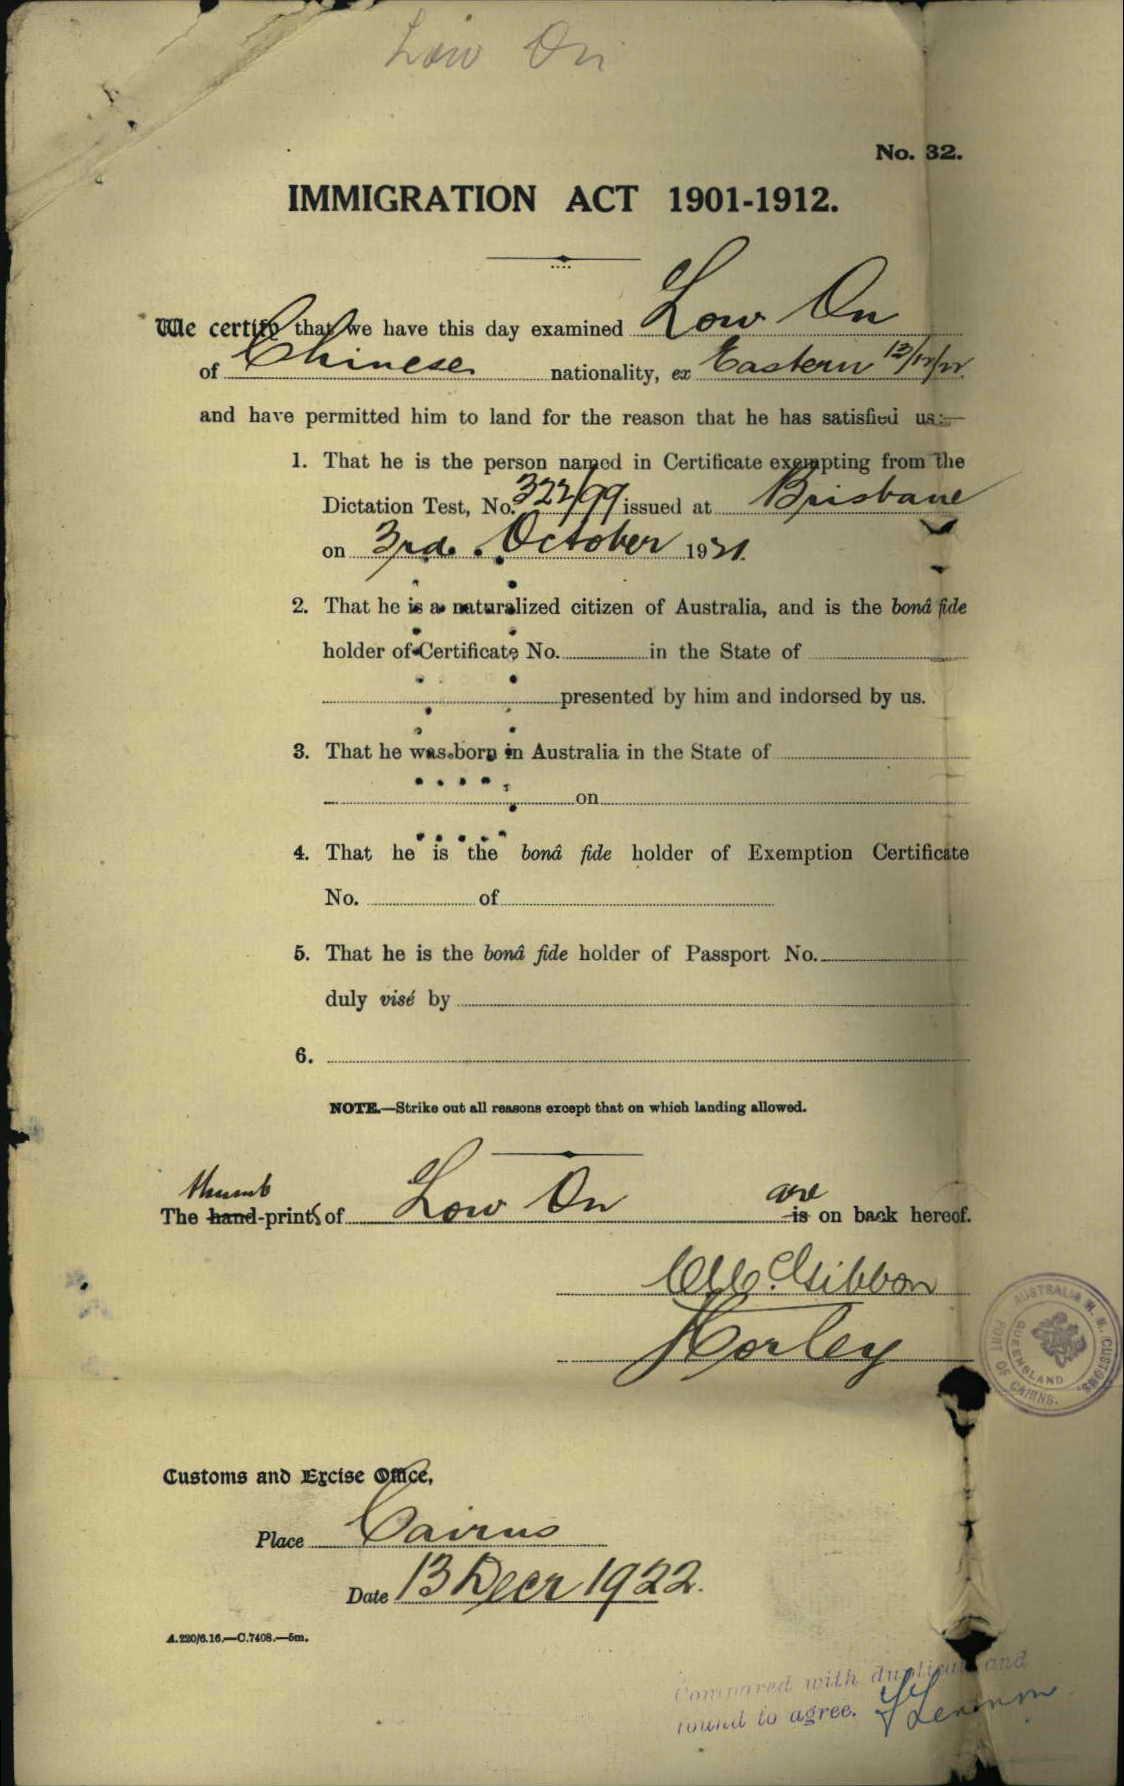 Low On
No. 32.
IMMIGRATION ACT 1901-1912.
We certify that we have this day examined Low On
of Chinese nationality, ex Eastern 12/12/22
and have permitted him to land for the reason that he has satisfied us:—
1. That he is the person named in Certificate exempting from the
Dictation Test, No. 322/99 issued at Brisbane
on 3rd. October 1921.
2. That he is a naturalized citizen of Australia, and is the bonâ fide
holder of Certificate No. in the State of
presented by him and indorsed by us.
3. That he was born in Australia in the State of
on
4. That he is the bonâ fide holder of Exemption Certificate
No. of
5. That he is the bonâ fide holder of Passport No.
duly visé by
6.
NOTE.—Strike out all reasons except that on which landing allowed.
thumb are
The hand-prints of Low On is on back hereof.
Gibbon
Horley
AUSTRALIA H. M. CUSTOMS.
QUEENSLAND
PORT OF CAIRNS.
Customs and Excise Office,
Place Cairns
Date 13 Decr 1922.
A.220/6.16.—C.7408.—5m.
Compared with duplicate and
found to agree.